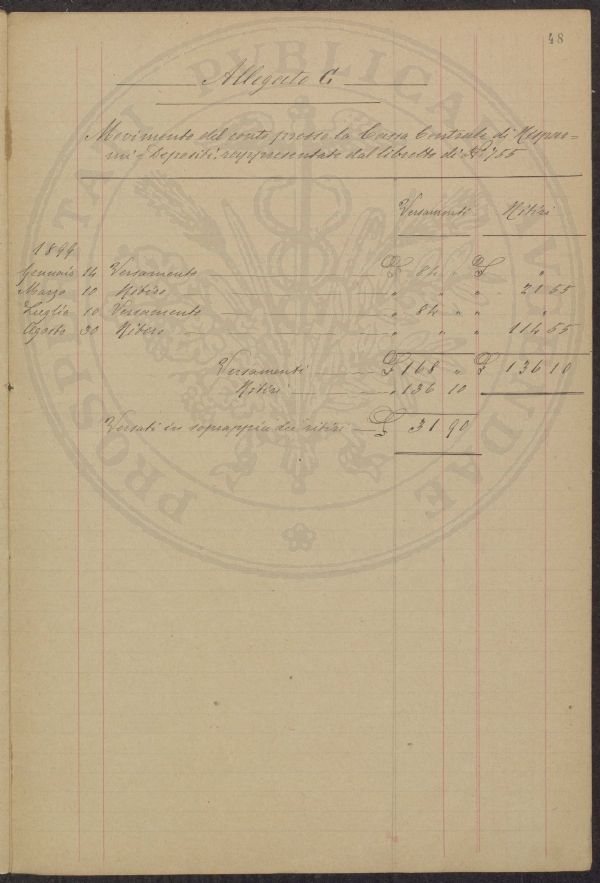 48
Allegato C
Movimento del conto presso la Cassa Centrale di Rispar=
mi e Depositi, rappresentato dal libretto di N° 1755
Versamenti Ritiri
1899
Gennaio 14 Versamento £ 84 " £ "
Marzo 10 Ritiro " " " 21 55
Luglio 10 Versamento " 84 " " "
Agosto 30 Ritiro " " " 114 55
Versamenti £ 168 " £ 136 10
Ritiri " 136 10
Versati in soprappiù dei ritiri £ 31 90
PROSPERITATI PUBLICAE AUGENDAE